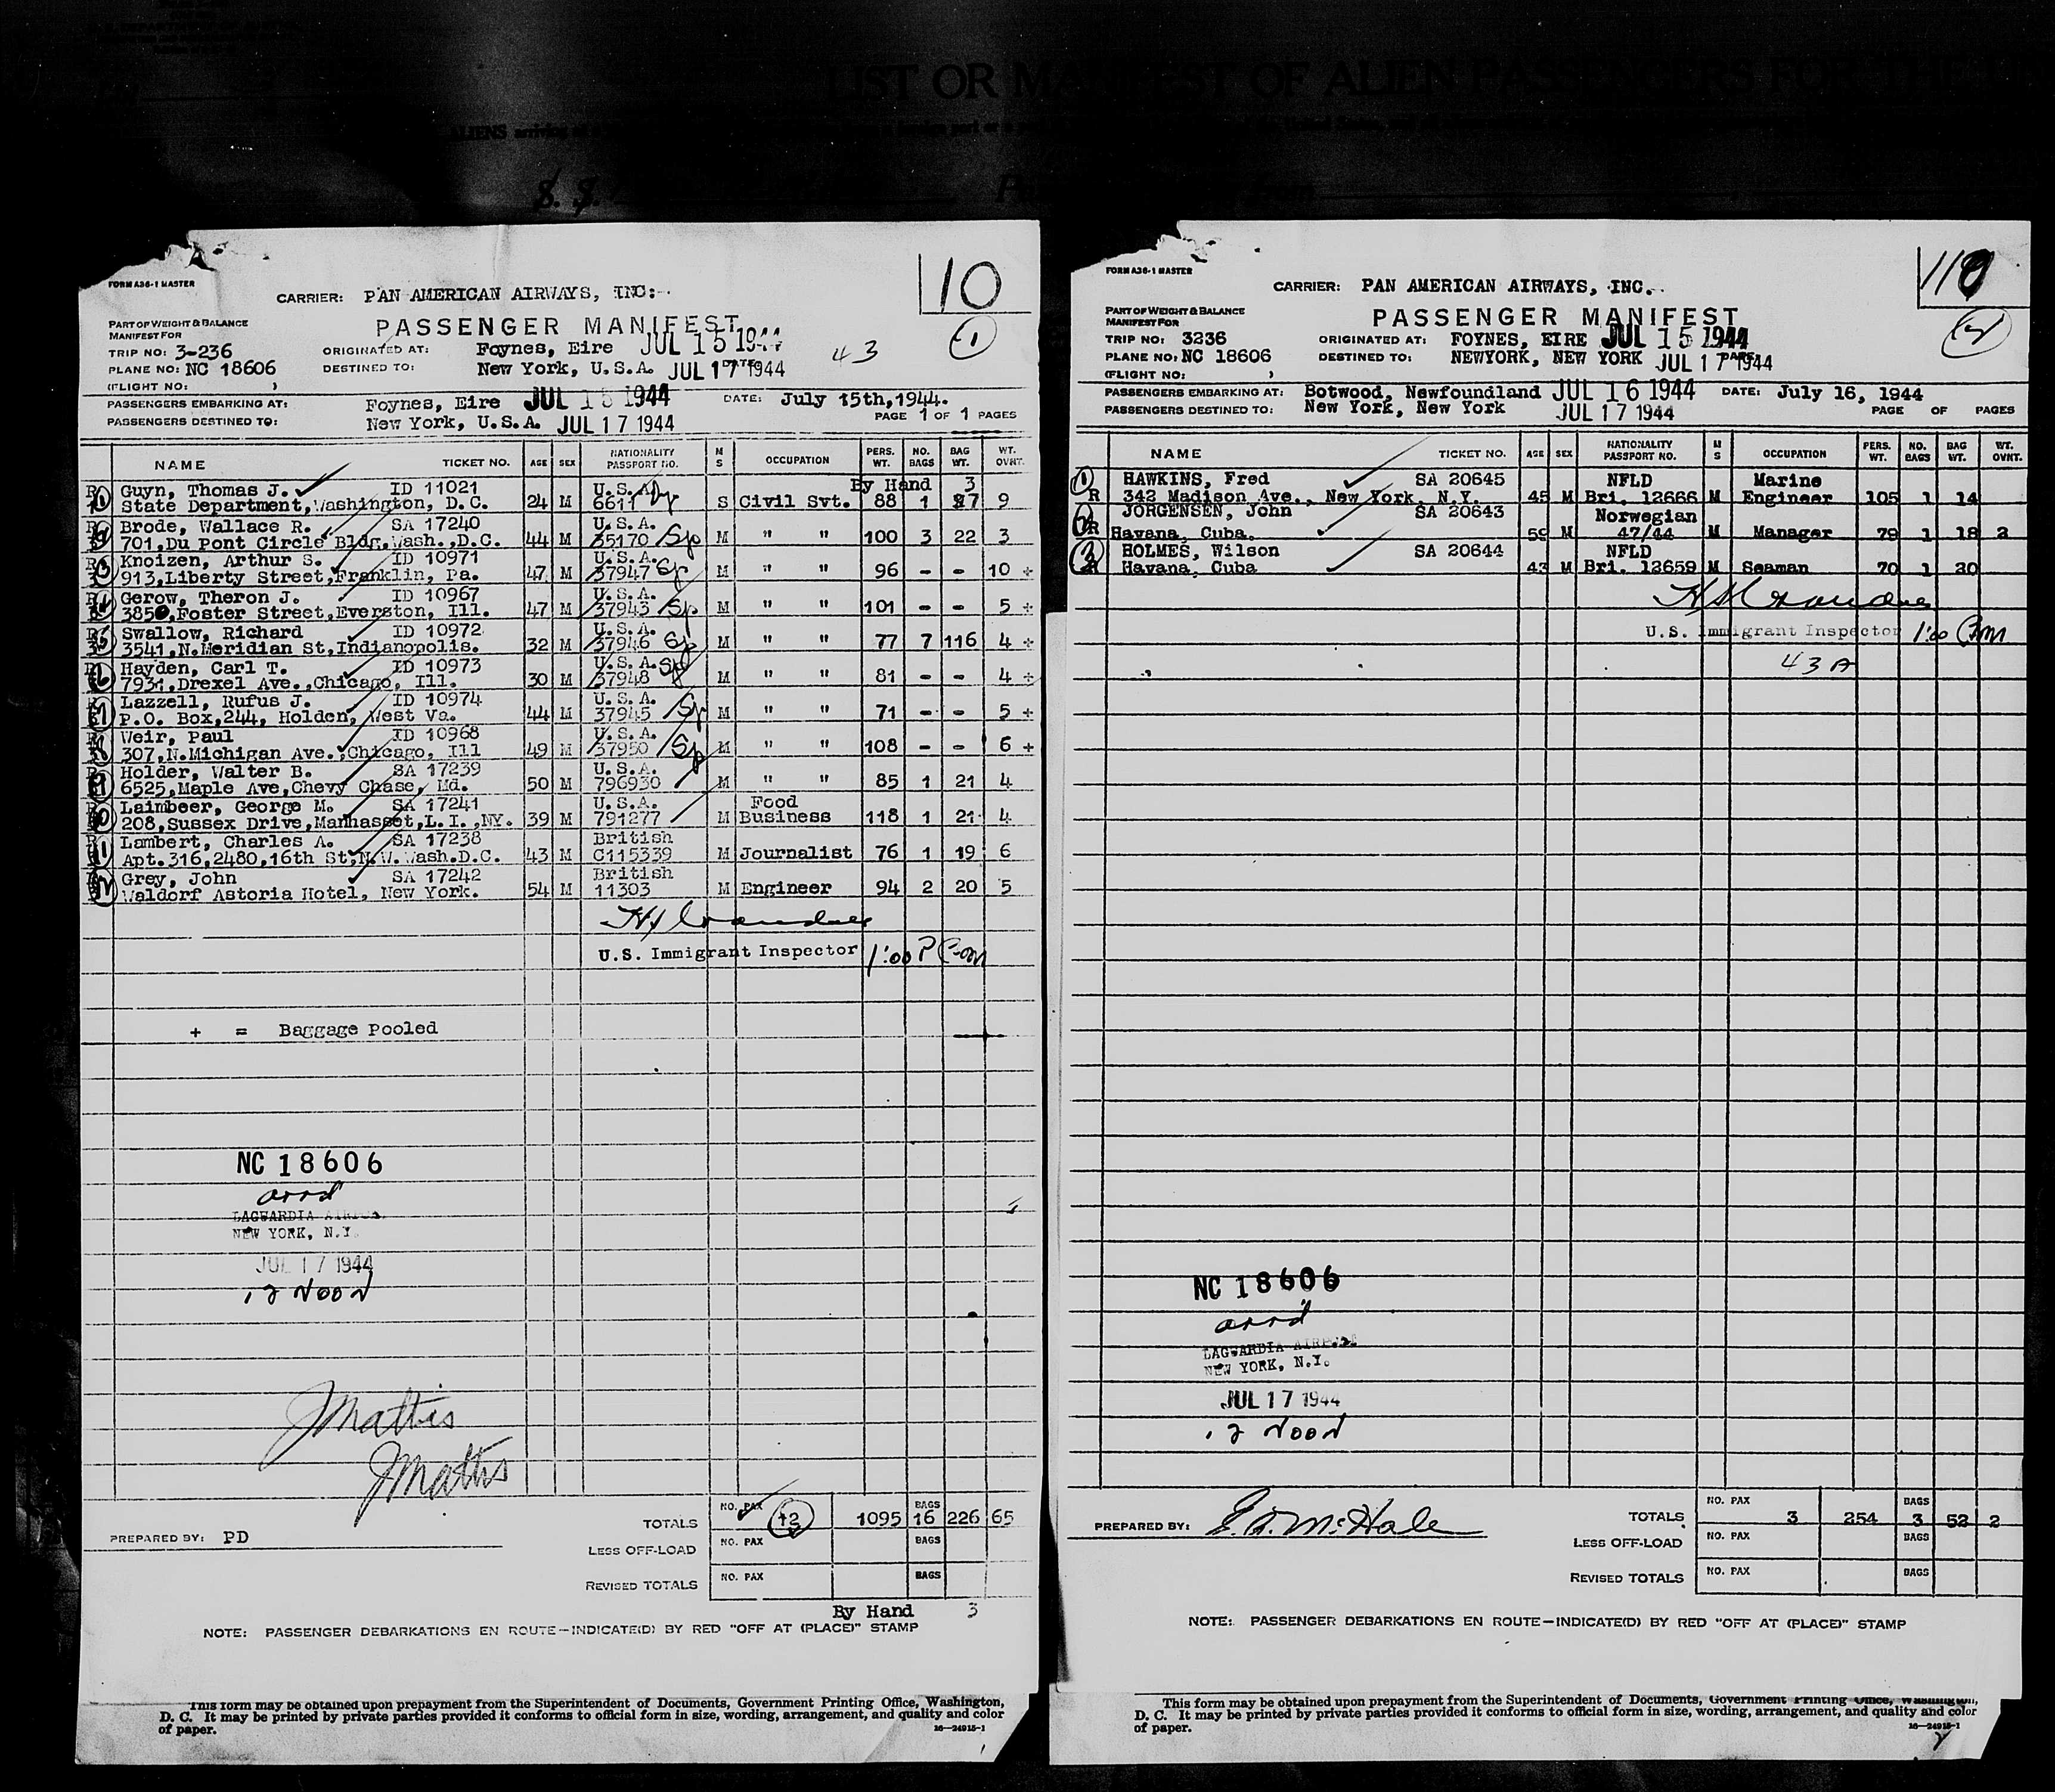 LIST OR MANIFEST OF ALIEN PASSENGERS FOR THE
ALIENS arriving at
S. S.
10
FORM A36-1 MASTER
CARRIER: PAN AMERICAN AIRWAYS, INC.
PART OF WEIGHT & BALANCE
MANIFEST FOR
PASSENGER MANIFEST
1
TRIP NO: 3-236
ORIGINATED AT: Foynes, Eire JUL 15 1944
43
PLANE NO: NC 18606
DESTINED TO: New York, U.S.A. JUL 17 1944
(FLIGHT NO: )
PASSENGERS EMBARKING AT: Foynes, Eire JUL 15 1944 DATE: July 15th, 1944.
PAGE 1 OF 1 PAGES
PASSENGERS DESTINED TO: New York, U.S.A. JUL 17 1944
NAME TICKET NO. AGE SEX NATIONALITY PASSPORT NO. M S OCCUPATION PERS. WT. NO. BAGS BAG WT. WT. OVNT.
By Hand 3
1 Guyn, Thomas J. ID 11021 U.S.A.
State Department, Washington, D.C. 24 M 6611 S Civil Svt. 88 1 27 9
Brode, Wallace R. SA 17240 U.S.A.
701,Du Pont Circle Bldg,Wash.,D.C. 44 M 35170 Sp M " " 100 3 22 3
Knoizen, Arthur S. ID 10971 U.S.A.
913,Liberty Street,Franklin, Pa. 47 M 37947 Sp M " " 96 - - 10 +
Gerow, Theron J. ID 10967 U.S.A.
3850,Foster Street,Everston, Ill. 47 M 37943 Sp M " " 101 - - 5 +
Swallow, Richard ID 10972 U.S.A.
3541,N.Meridian St,Indianopolis. 32 M 37946 Sp M " " 77 7 116 4 +
Hayden, Carl T. ID 10973 U.S.A. Sp
7931,Drexel Ave.,Chicago, Ill. 30 M 37948 M " " 81 - - 4 +
Lazzell, Rufus J. ID 10974 U.S.A.
P.O. Box,244, Holden, West Va. 44 M 37945 Sp M " " 71 - - 5 +
Weir, Paul ID 10968 U.S.A.
307,N.Michigan Ave.,Chicago, Ill 49 M 37950 Sp M " " 108 - - 6 +
Holder, Walter B. SA 17239 U.S.A.
6525,Maple Ave,Chevy Chase, Md. 50 M 796930 M " " 85 1 21 4
Laimbeer, George M. SA 17241 U.S.A. Food
208,Sussex Drive,Manhasset,L.I.,NY. 39 M 791277 M Business 118 1 21 4
11 Lambert, Charles A. SA 17238 British
Apt.316,2480,16th St,N.W.Wash.D.C. 43 M C115339 M Journalist 76 1 19 6
Grey, John SA 17242 British
Waldorf Astoria Hotel, New York. 54 M 11303 M Engineer 94 2 20 5
U.S. Immigrant Inspector 1:00 P
+ = Baggage Pooled
NC 18606
arrd
LAGUARDIA AIRPORT
NEW YORK, N.Y.
JUL 17 1944
12 NOON
J Mattis
J Mattis
TOTALS NO. PAX 12 1095 BAGS 16 226 65
PREPARED BY: PD
LESS OFF-LOAD NO. PAX BAGS
REVISED TOTALS NO. PAX BAGS
By Hand 3
NOTE: PASSENGER DEBARKATIONS EN ROUTE—INDICATE(D) BY RED "OFF AT (PLACE)" STAMP
This form may be obtained upon prepayment from the Superintendent of Documents, Government Printing Office, Washington,
D. C. It may be printed by private parties provided it conforms to official form in size, wording, arrangement, and quality and color
of paper. 16—24915-1
FORM A36-1 MASTER
CARRIER: PAN AMERICAN AIRWAYS, INC.
PART OF WEIGHT & BALANCE
MANIFEST FOR
PASSENGER MANIFEST
2
TRIP NO: 3236
ORIGINATED AT: FOYNES, EIRE JUL 15 1944
PLANE NO: NC 18606
DESTINED TO: NEWYORK, NEW YORK JUL 17 1944
(FLIGHT NO: )
PASSENGERS EMBARKING AT: Botwood, Newfoundland JUL 16 1944 DATE: July 16, 1944
PASSENGERS DESTINED TO: New York, New York JUL 17 1944 PAGE OF PAGES
NAME TICKET NO. AGE SEX NATIONALITY PASSPORT NO. M S OCCUPATION PERS. WT. NO. BAGS BAG WT. WT. OVNT.
1 HAWKINS, Fred SA 20645 NFLD Marine
R 342 Madison Ave., New York, N.Y. 45 M Bri. 12666 M Engineer 105 1 14
2 JORGENSEN, John SA 20643 Norwegian
R Havana, Cuba. 59 M 47/44 M Manager 79 1 18 2
3 HOLMES, Wilson SA 20644 NFLD
R Havana, Cuba 43 M Bri. 12659 M Seaman 70 1 20
U.S. Immigrant Inspector 1:00 Pm
43 A
NC 18606
arrd
LAGUARDIA AIRPORT
NEW YORK, N.Y.
JUL 17 1944
12 NOON
TOTALS NO. PAX 3 254 BAGS 3 52 2
PREPARED BY: McHale
LESS OFF-LOAD NO. PAX BAGS
REVISED TOTALS NO. PAX BAGS
NOTE: PASSENGER DEBARKATIONS EN ROUTE—INDICATE(D) BY RED "OFF AT (PLACE)" STAMP
This form may be obtained upon prepayment from the Superintendent of Documents, Government Printing Office, Washington,
D. C. It may be printed by private parties provided it conforms to official form in size, wording, arrangement, and quality and color
of paper. 16—24915-1
2